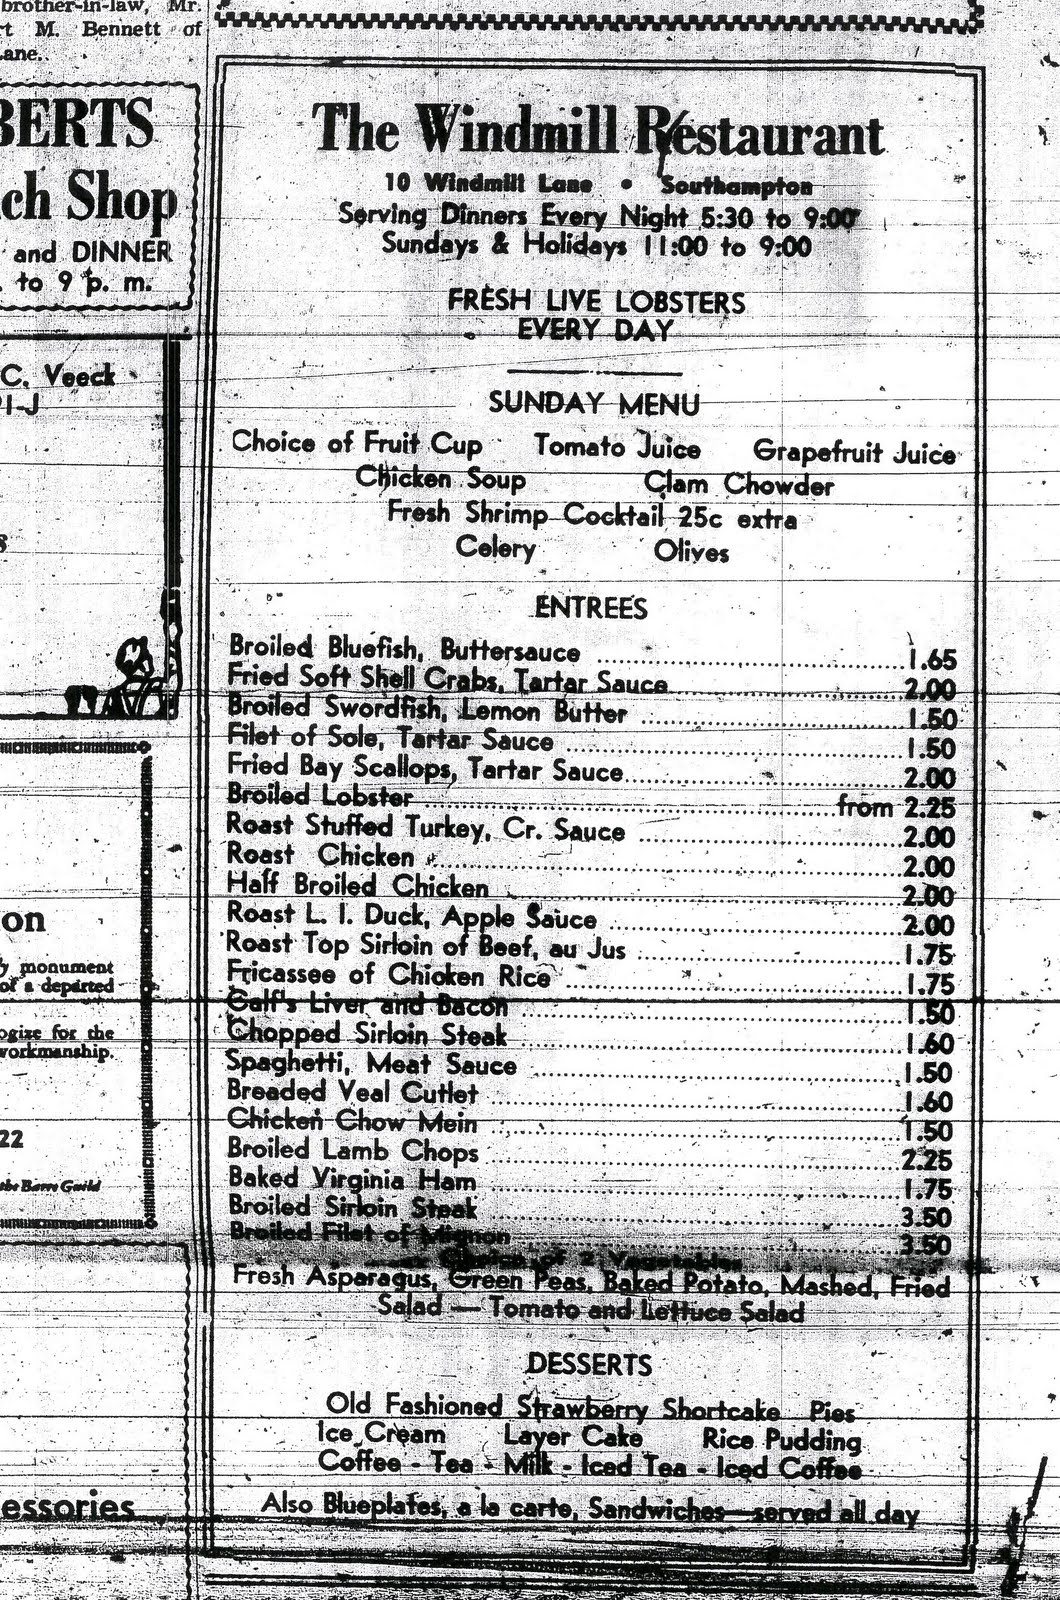 brother-in-law, Mr.
rt M. Bennett of
Lane.
BERTS
ch Shop
and DINNER
to 9 p. m.
C. Veeck
91-J
on
monument
of a departed
ogize for the
workmanship.
22
the Barre Guild
essories
The Windmill Restaurant
10 Windmill Lane • Southampton
Serving Dinners Every Night 5:30 to 9:00
Sundays & Holidays 11:00 to 9:00
FRESH LIVE LOBSTERS
EVERY DAY
SUNDAY MENU
Choice of Fruit Cup Tomato Juice Grapefruit Juice
Chicken Soup Clam Chowder
Fresh Shrimp Cocktail 25c extra
Celery Olives
ENTREES
Broiled Bluefish, Buttersauce 1.65
Fried Soft Shell Crabs, Tartar Sauce 2.00
Broiled Swordfish, Lemon Butter 1.50
Filet of Sole, Tartar Sauce 1.50
Fried Bay Scallops, Tartar Sauce 2.00
Broiled Lobster from 2.25
Roast Stuffed Turkey, Cr. Sauce 2.00
Roast Chicken 2.00
Half Broiled Chicken 2.00
Roast L. I. Duck, Apple Sauce 2.00
Roast Top Sirloin of Beef, au Jus 1.75
Fricassee of Chicken Rice 1.75
Calf's Liver and Bacon 1.50
Chopped Sirloin Steak 1.60
Spaghetti, Meat Sauce 1.50
Breaded Veal Cutlet 1.60
Chicken Chow Mein 1.50
Broiled Lamb Chops 2.25
Baked Virginia Ham 1.75
Broiled Sirloin Steak 3.50
Broiled Filet of Mignon 3.50
Choice of 2 Vegetables
Fresh Asparagus, Green Peas, Baked Potato, Mashed, Fried
Salad — Tomato and Lettuce Salad
DESSERTS
Old Fashioned Strawberry Shortcake Pies
Ice Cream Layer Cake Rice Pudding
Coffee - Tea - Milk - Iced Tea - Iced Coffee
Also Blueplates, a la carte, Sandwiches—served all day